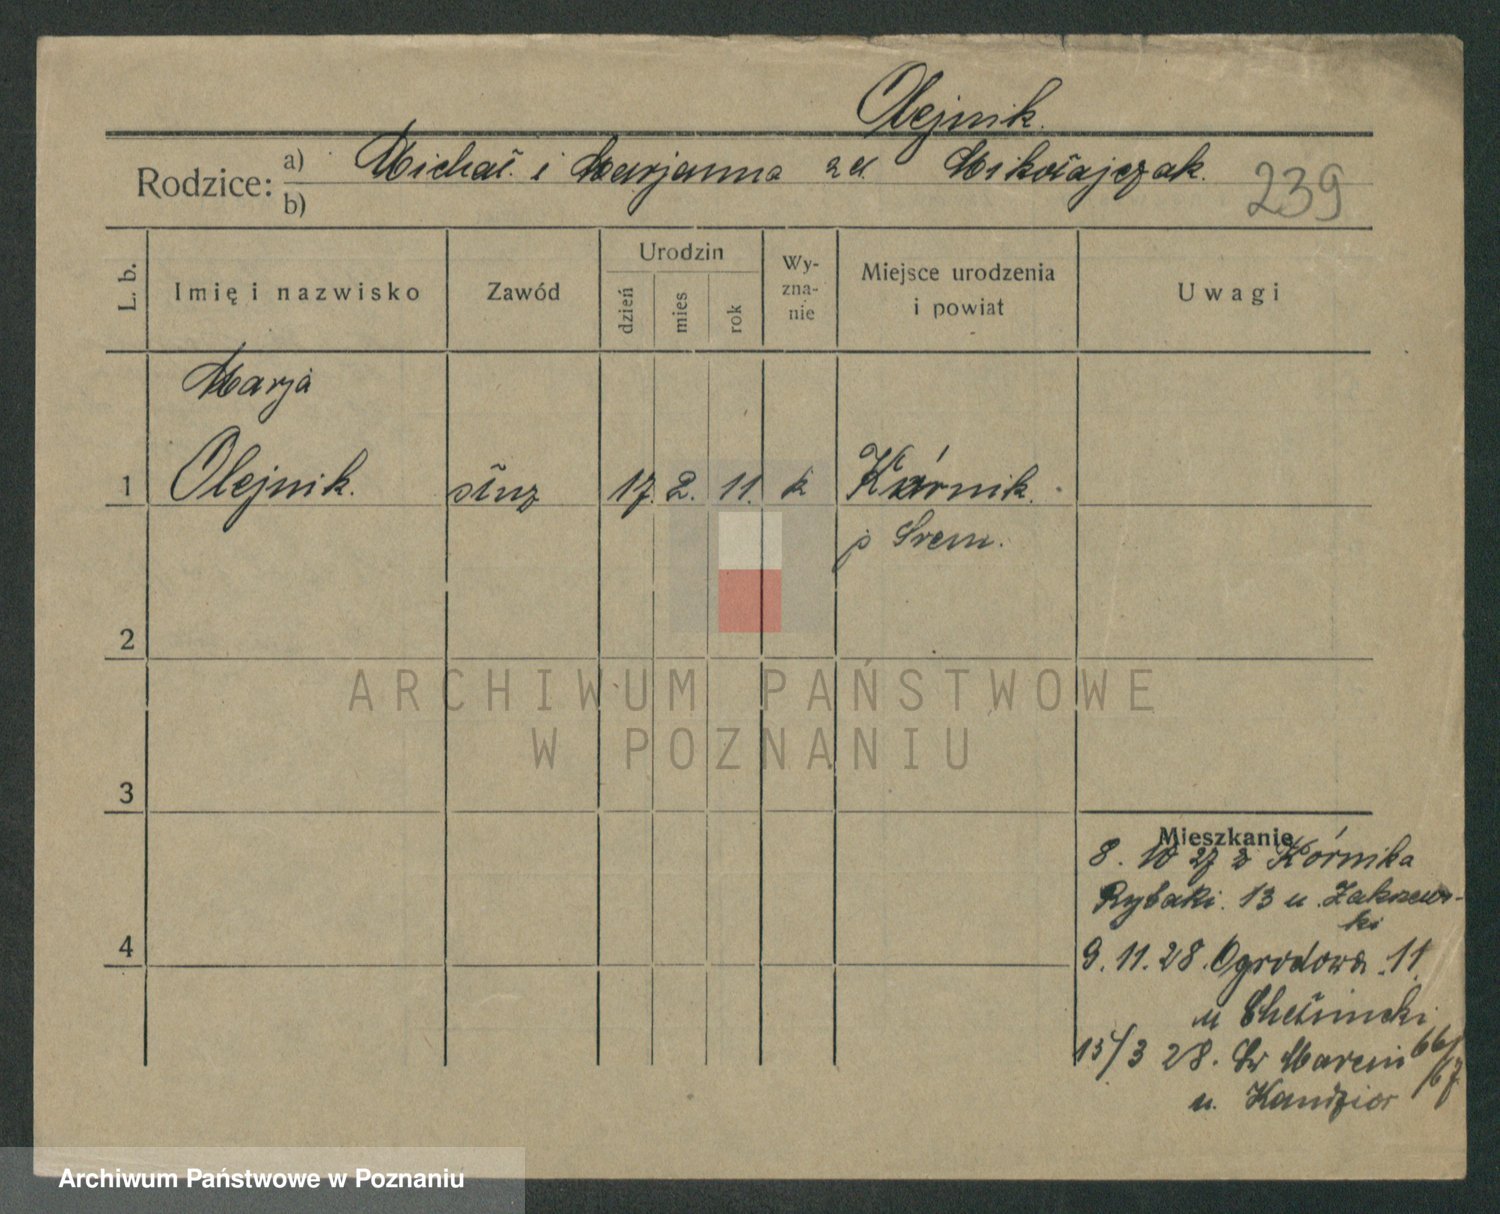 Olejnik.
Rodzice: a) Michał i Marjanna zd Mikołajczak.
b)
239
L. b.
Imię i nazwisko
Zawód
Urodzin
dzień
mies
rok
Wy-
zna-
nie
Miejsce urodzenia
i powiat
Uwagi
Marja
1 Olejnik. służ 17. 2. 11. k Kórnik.
p Śrem.
2
3
4
ARCHIWUM PAŃSTWOWE
W POZNANIU
Mieszkanie
8. 10 27 z Kórnika
Rybaki 13 u Zakrzews-
ki
9. 11. 28. Ogrodowa 11
u
15/3 28. Św Marcin 66/
67
u.
Archiwum Państwowe w Poznaniu